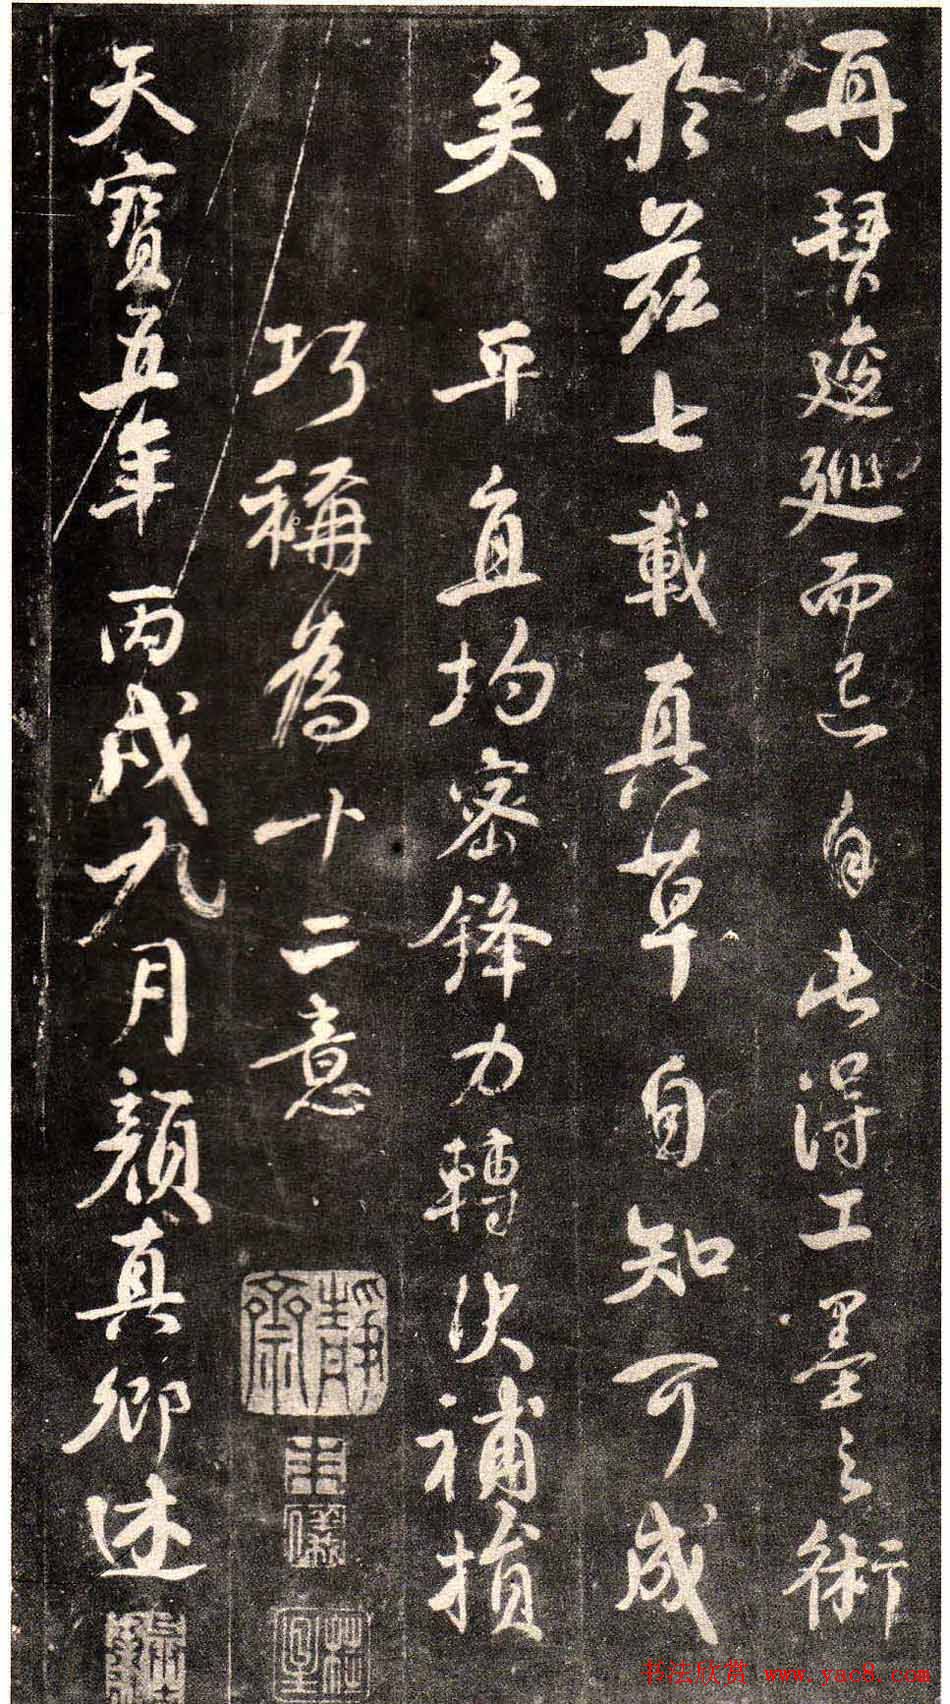 再拜逡巡而已自此得工墨之術
於茲七載真草自知可成
矣 平直均密鋒力轉決補損
巧稱為十二意
天寶五年丙戌九月顏真卿述
靜齋
書法欣賞 www.yac8.com